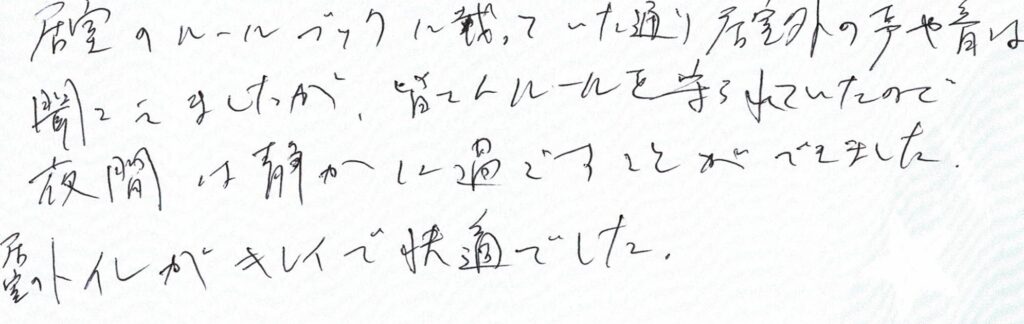 居室のルールブックに載っていた通り居室外の声や音は
聞こえましたが、皆さんルールを守られていたので
夜間は静かに過ごすことができました。
居室のトイレがキレイで快適でした。